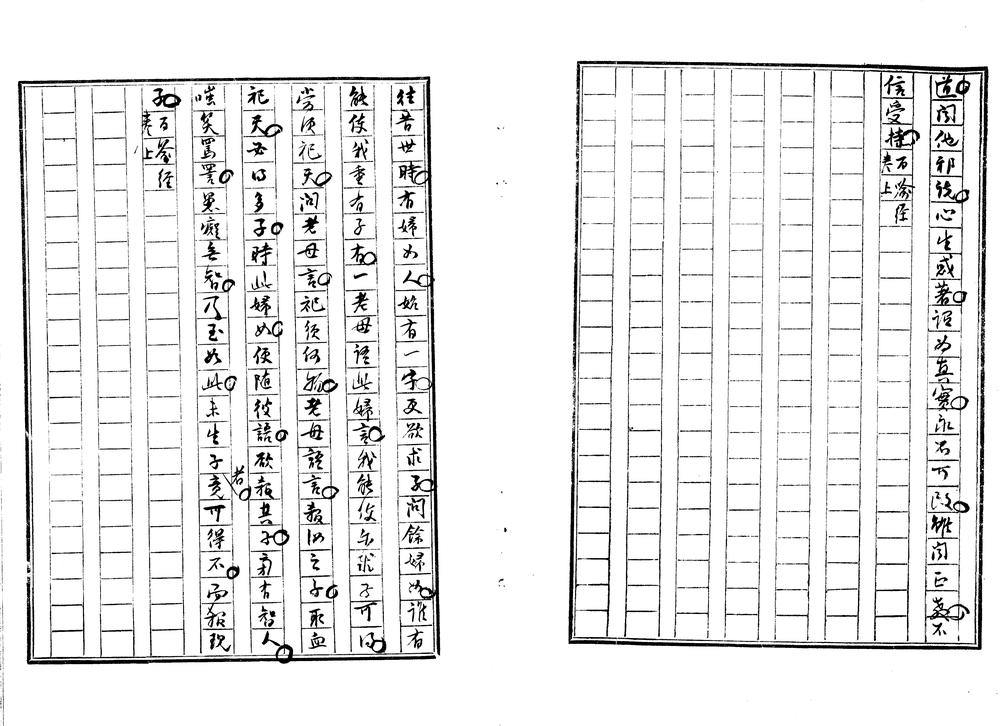 道聞他邪說心生惑著謂為真實永不可改雖聞正教不
信受持百喻經
卷上
往昔世時有婦女人始有一字更欲求子問餘婦女誰有
能使我重有子有一老母語此婦言我能使尔求子可得
當須祀天問老母言祀須何物老母語言殺汝之子取血
祀天必得多子時此婦女便随彼語欲殺其子旁有智人
嗤笑罵詈愚癡無智乃至如此未生子者竟可得不而殺現
子百喻經
卷上